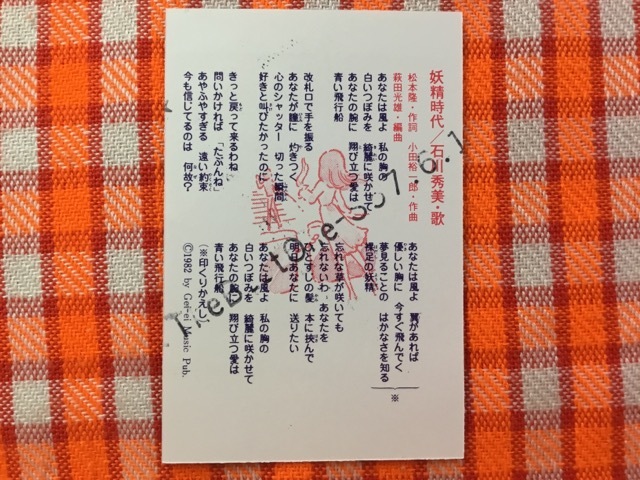 妖精時代／石川秀美・歌
松本隆・作詞 小田裕一郎・作曲
萩田光雄・編曲
あなたは風よ 私の胸の
白いつぼみを 綺麗に咲かせて
あなたの腕に 翔び立つ愛は
青い飛行船
改札口で手を振る
あなたが瞳に 灼きつく
心のシャッター 切った瞬間
好きと叫びたかったのに
きっと戻って来るわね
問いかければ 「たぶんね」
あやふやすぎる 遠い約束
今も信じてるのは 何故?
あなたは風よ 翼があれば
優しい胸に 今すぐ飛んでく
夢見ることの はかなさを知る
裸足の妖精
※
忘れな草が咲いても
忘れないわ あなたを
ひとすじの髪 本に挟んで
明日あなたに 送りたい
あなたは風よ 私の胸の
白いつぼみを 綺麗に咲かせて
あなたの腕に 翔び立つ愛は
青い飛行船
(※印くりかえし)
©1982 by Gei-ei Music Pub.